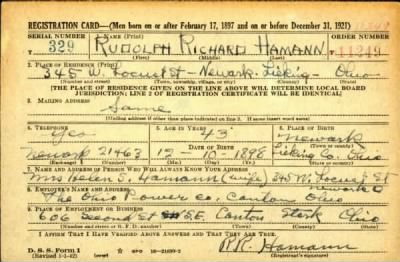 REGISTRATION CARD—(Men born on or after February 17, 1897 and on or before December 31, 1921)
SERIAL NUMBER 1. NAME (Print) ORDER NUMBER
329 RUDOLPH RICHARD HAMANN 11249
(First) (Middle) (Last)
2. PLACE OF RESIDENCE (Print)
345 W. Locust St - Newark - Licking - Ohio
(Number and street) (Town, township, village, or city) (County) (State)
[THE PLACE OF RESIDENCE GIVEN ON THE LINE ABOVE WILL DETERMINE LOCAL BOARD
JURISDICTION; LINE 2 OF REGISTRATION CERTIFICATE WILL BE IDENTICAL]
3. MAILING ADDRESS
Same
(Mailing address if other than place indicated on line 2. If same insert word same)
4. TELEPHONE 5. AGE IN YEARS 6. PLACE OF BIRTH
Yes 43 Newark
DATE OF BIRTH (Town or county)
Newark 21463 12 - 10 - 1898 Licking Co. Ohio
(Exchange) (Number) (Mo.) (Day) (Yr.) (State or country)
7. NAME AND ADDRESS OF PERSON WHO WILL ALWAYS KNOW YOUR ADDRESS
Mrs Helen S. Hamann (wife) 345 W. Locust St Newark O
8. EMPLOYER'S NAME AND ADDRESS
The Ohio Power Co. Canton Ohio
9. PLACE OF EMPLOYMENT OR BUSINESS
606 Second St S.E. Canton Stark Ohio
(Number and street or R. F. D. number) (Town) (County) (State)
I AFFIRM THAT I HAVE VERIFIED ABOVE ANSWERS AND THAT THEY ARE TRUE.
D. S. S. Form 1
(Revised 4-1-42) GPO 16-21630-2
R.R. Hamann